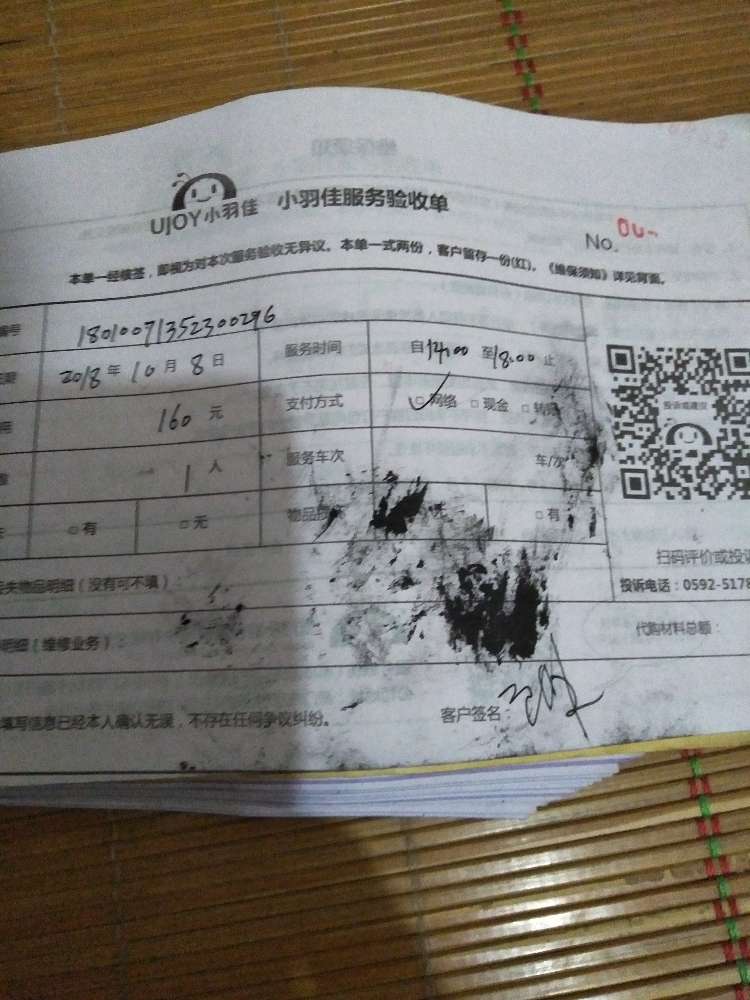 UJOY小羽佳 小羽佳服务验收单
No.
本单一经核签，即视为对本次服务验收无异议。本单一式两份，客户留存一份(红)。《维保须知》详见背面。
编号 18010071352300296
2018年10月8日 服务时间 自14:00至18:00止
160元 支付方式 网络 现金 转账
1人 服务车次 车/次
有 无 物品 无 有
投诉或建议
扫码评价或投
失物品明细（没有可不填）： 投诉电话：0592-5178
明细（维修业务）： 代购材料总额：
填写信息已经本人确认无误，不存在任何争议纠纷。 客户签名：